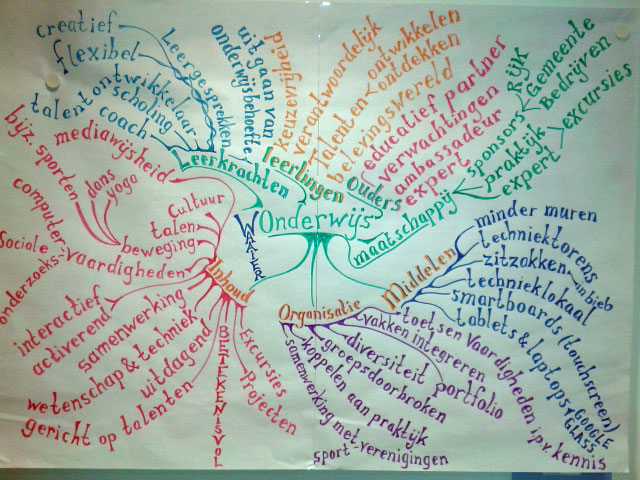 creatief
flexibel
talent ontwikkelaar
scholing
coach
Leergesprekken
uit gaan van
onderwijsbehoefte
Leerkrachten
keuzevrijheid
verantwoordelijk
Talenten
ontwikkelen
ontdekken
belevingswereld
leerlingen
educatief partner
verwachtingen
ambassadeur
expert
Ouders
sponsors
Rijk
Gemeente
Bedrijven
praktijk
expert
excursies
maatschappij
Onderwijs
WATER
mediawijsheid
bijz. sporten
dans
yoga
Cultuur
talen
beweging
computer
Sociale-
onderzoeks-
vaardigheden
Inhoud
interactief
activerend
samenwerking
wetenschap & techniek
uitdagend
gericht op talenten
BETEKENISVOL
Excursies
Projecten
Organisatie
toetsen vaardigheden i.p.v. kennis
vakken integreren
portfolio
diversiteit
groepsdoorbroken
koppelen aan praktijk
samenwerking met verenigingen
sport-
Middelen
minder muren
techniektorens
zitzakken-in bieb
technieklokaal
smartboards (touchscreen)
tablets & laptops + GOOGLE
GLASS